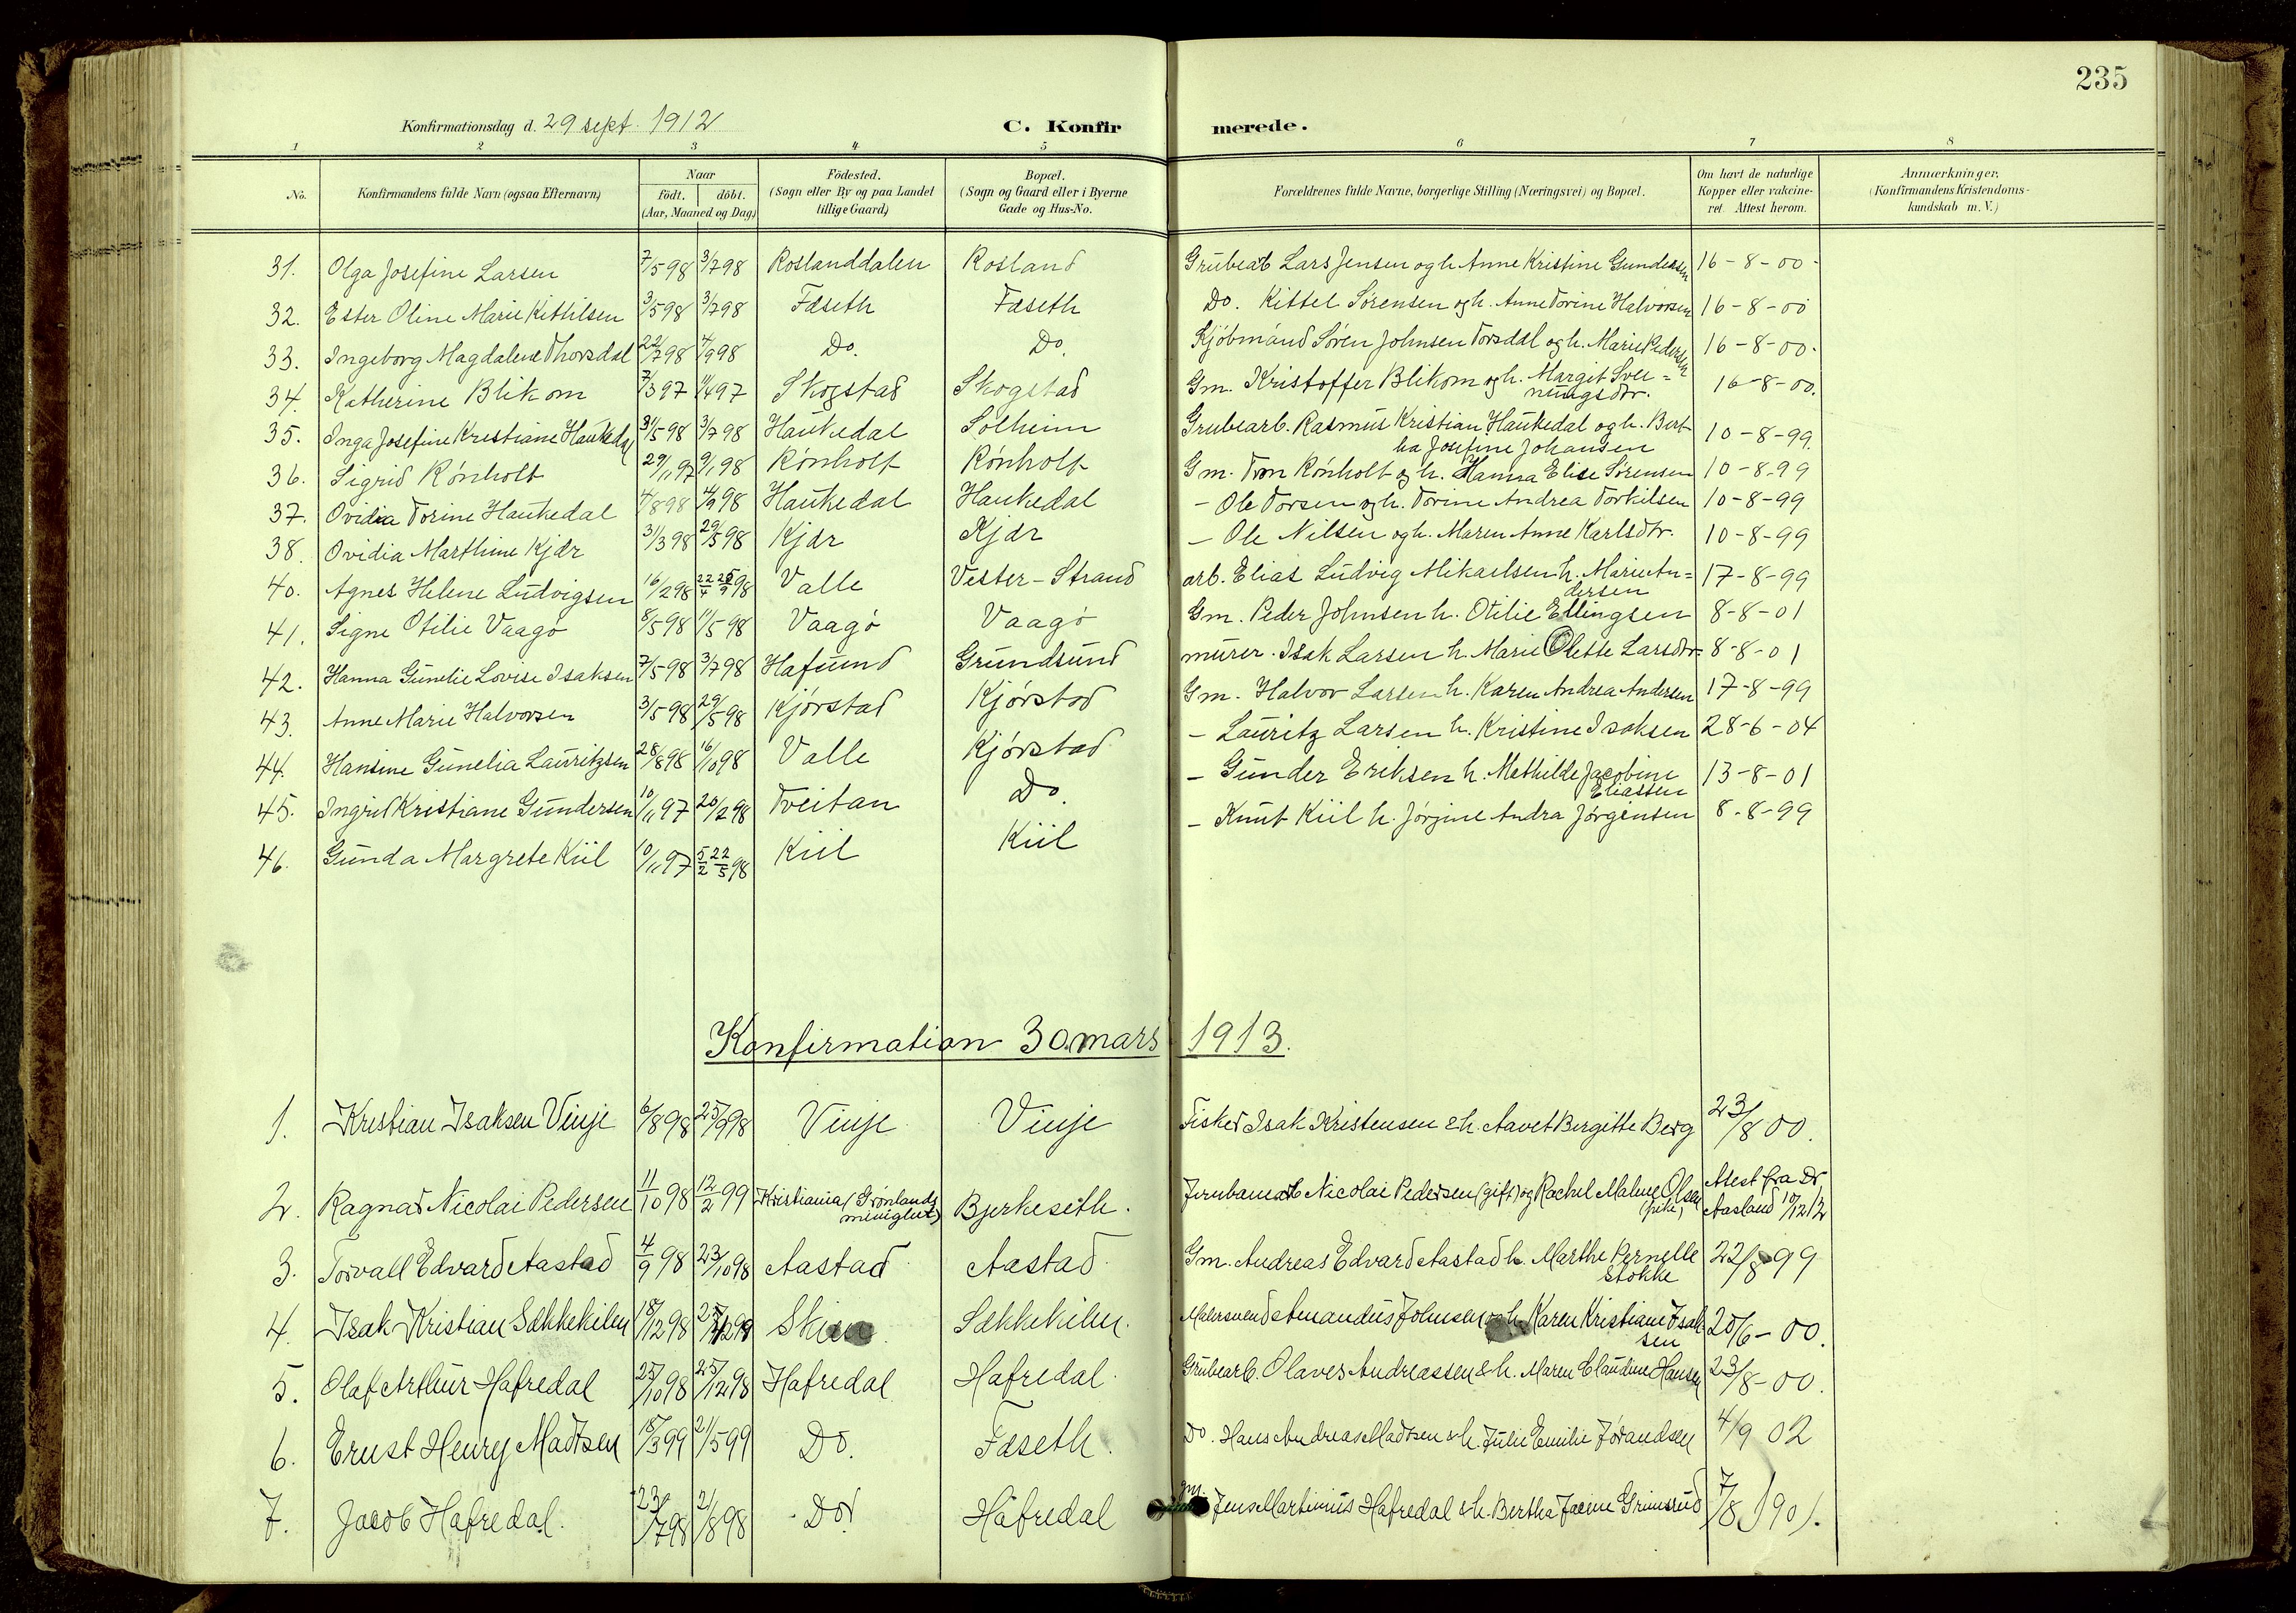 235
Konfirmationsdag d. 29 sept. 1912 C. Konfirmerede.
1 2 3 4 5 6 7 8
No. Konfirmandens fulde Navn (ogsaa Efternavn) Naar født. døbt. (Aar, Maaned og Dag) Födested. (Sogn eller By og paa Landet tillige Gaard) Bopæl. (Sogn og Gaard eller i Byerne Gade og Hus-No. Forældrenes fulde Navne, borgerlige Stilling (Næringsvei) og Bopæl. Om havt de naturlige Kopper eller vakcineret. Attest herom. Anmærkninger. (Konfirmandens Kristendomskundskab m. V.)
31. Olga Josefine Larsen 7/5 98 3/7 98 Roslanddalen Rosland Grubearb Lars Jensen og h. Anne Kristine Gundersen 16-8-00
32. Ester Oline Marie Kittilsen 3/5 98 3/7 98 Fæseth Fæseth Do. Kittel Sørensen og h. Anne Torine Halvorsen 16-8-00
33. Ingeborg Magdalene Thorsdal 22/7 98 4/9 98 Do. Do. Kjøbmand Søren Johnsen Torsdal og h. Marie Pedersen 16-8-00
34. Katherine Blikom 7/3 97 11/4 97 Skogstad Skogstad Gm. Kristoffer Blikom og h. Margit Svei=
nungsdtr. 16-8-00.
35. Inga Josefine Kristiane Haukedal 31/5 98 3/7 98 Haukedal Solheim Grubearb. Rasmus Kristian Haukedal og h. Bert-
ha Josefine Johansen 10-8-99.
36. Sigrid Rønholt 29/11 97 9/1 98 Rønholt Rønholt Gm. Tom Rønholt og h. Hanna Elise Sørensen 10-8-99
37. Ovidia Torine Haukedal 4/8 98 4/9 98 Haukedal Haukedal - Ole Torsen og h. Torine Andrea Torkilsen 10-8-99
38. Ovidia Marthine Kjær 31/3 98 29/5 98 Kjær Kjær - Ole Nilsen og h. Maren Anne Karlsdtr. 10-8-99
40. Agnes Helene Ludvigsen 16/2 98 22/4 25/9 98 Valle Vester-Strand arb. Elias Ludvig Mikaelsen h. Marie An=
dersen 17-8-99
41. Signe Otilie Vaagø 8/5 98 11/5 98 Vaagø Vaagø Gm. Peder Johnsen h. Otilie Ellingsen 8-8-01
42. Hanna Gunelie Lovise Isaksen 7/5 98 3/7 98 Hafsund Grundsund murer. Isak Larsen h. Marie Olette Larsdtr 8-8-01
43. Anne Marie Halvorsen 3/5 98 29/5 98 Kjørstad Kjørstad Gm. Halvor Larsen h. Karen Andrea Andersen 17-8-99
44. Hansine Gunelia Lauritzsen 28/8 98 16/10 98 Valle Kjørstad - Lauritz Larsen h. Kristine Isaksen 28-6-04
45. Ingrid Kristiane Gundersen 10/11 97 20/2 98 Tveitan Do. - Gunder Eriksen h. Methilde Jacobine
Eliassen 13-8-01
46. Gunda Margrete Kiil 10/11 97 5/2 22/5 98 Kiil Kiil - Knut Kiil h. Jørgine Andra Jørgensen 8-8-99
Konfirmation 30. mars 1913.
1. Kristian Isaksen Vinje 6/8 98 25/9 98 Vinje Vinje Fisker Isak Kristensen & h. Aavet Bergitte Berg 23/8 00.
2. Ragnar Nicolai Pedersen 11/10 98 12/2 99 Kristiania (Grønlands
menighet) Bjerkeseth. Jernbanearb Nicolai Pedersen (gift) og Rachel Malene Olsen
(pike) Attest fra Dr.
Aasland 10/12 12
3. Torvall Edvard Aastad 4/9 98 23/10 98 Aastad Aastad. Gm. Andreas Edvard Aastad h. Marthe Pernelle
Stokke 22/8 99
4. Isak Kristian Sækkekilen 18/12 98 Skien Sækkekilen. Malersvend Amandus Johnsen og h. Karen Kristiane Isak
sen 20/6-00.
5. Olaf Arthur Hafredal 25/10 98 25/12 98 Hafredal Hafredal. Grubearb. Olaves Andreassen & h. Maren Claudine Hansen 23/8-00.
6. Ernst Henry Madtsen 18/3 99 21/5 99 Do. Fæseth. Do. Hans Andreas Madtsen & h. Julie Emilie Jørandsen 4/9 02
7. Jacob Hafredal. 23/7 98 21/8 98 Do. Hafredal Gm. Jens Martinius Hafredal & h. Bertha Jacine Grimsrud 7/8 1901.